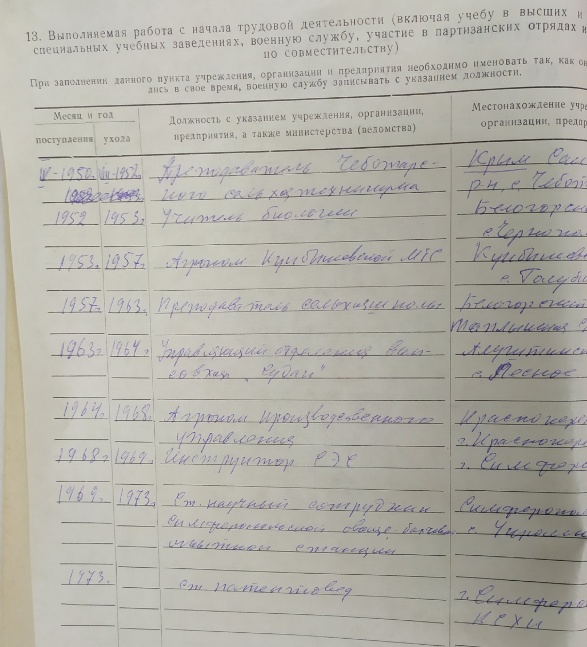 13. Выполняемая работа с начала трудовой деятельности (включая учебу в высших и
специальных учебных заведениях, военную службу, участие в партизанских отрядах и
по совместительству)
При заполнении данного пункта учреждения, организации и предприятия необходимо именовать так, как они
лись в свое время, военную службу записывать с указанием должности.
Месяц и год
поступления ухода
Должность с указанием учреждения, организации,
предприятия, а также министерства (ведомства)
Местонахождение учре
организации, предпр
1950. VIII-1952 Преподаватель Чеботарс- Крым Сак
кого сельхозтехникума р-н, с. Чебот
1952 1953г Учитель биологии Белогорск
с. Черно
1953г. 1957г Агроном Куйбышевской МТС Куйбышев
с. Голуб
1957г 1963г. Преподаватель сельхозшколы Белогорский
1963г 1964г Управляющий отделения вин-
совхоз „Судак" с. Лесное
1964г. 1968г. Агроном Производственного Красногв
управления г. Красно
1968г 1969г. Инструктор СЭС г. Симферо
1969г. 1973г. Ст. научный сотрудник Симферопол
Симферопольской овоще-бахчевой с. Укромно
опытной станции
1973г. ст. патентовед г. Симферо